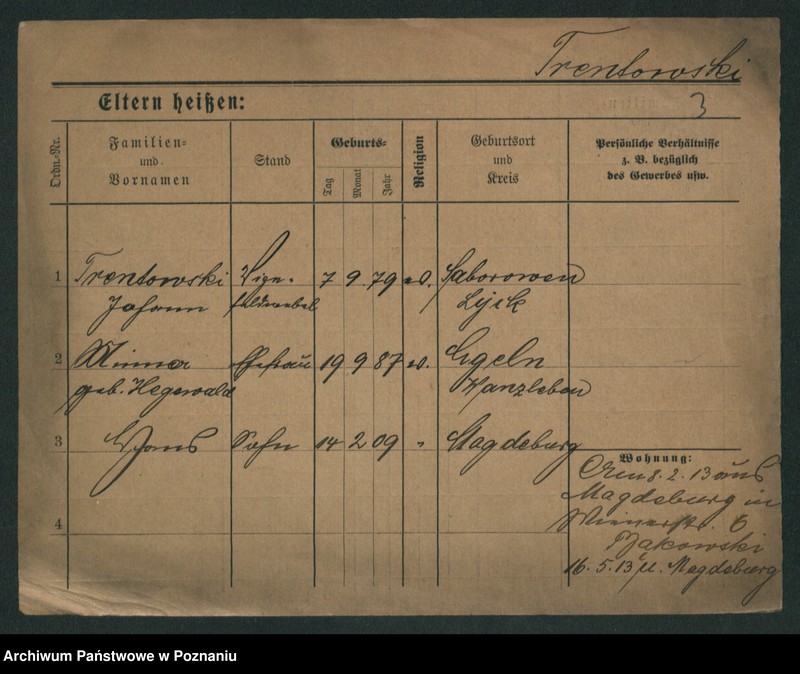 Trentowski
3
Eltern heißen:
Ordn.-Nr.
Familien-
und
Vornamen
Stand
Geburts-
Tag
Monat
Jahr
Religion
Geburtsort
und
Kreis
Persönliche Verhältnisse
z. B. bezüglich
des Gewerbes usw.
1 Trentowski Vize- 7 9 79 ev. Saborowen
Johann feldwebel Lyck
2 Minna Ehefrau 19 9 87 ev. Egeln
geb. Hegewald Wanzleben
3 Hans Sohn 14 2 09 " Magdeburg
Wohnung:
8. 2. 13 aus
Magdeburg in
Wienerstr. 6
4
16. 5. 13 n. Magdeburg
Archiwum Państwowe w Poznaniu